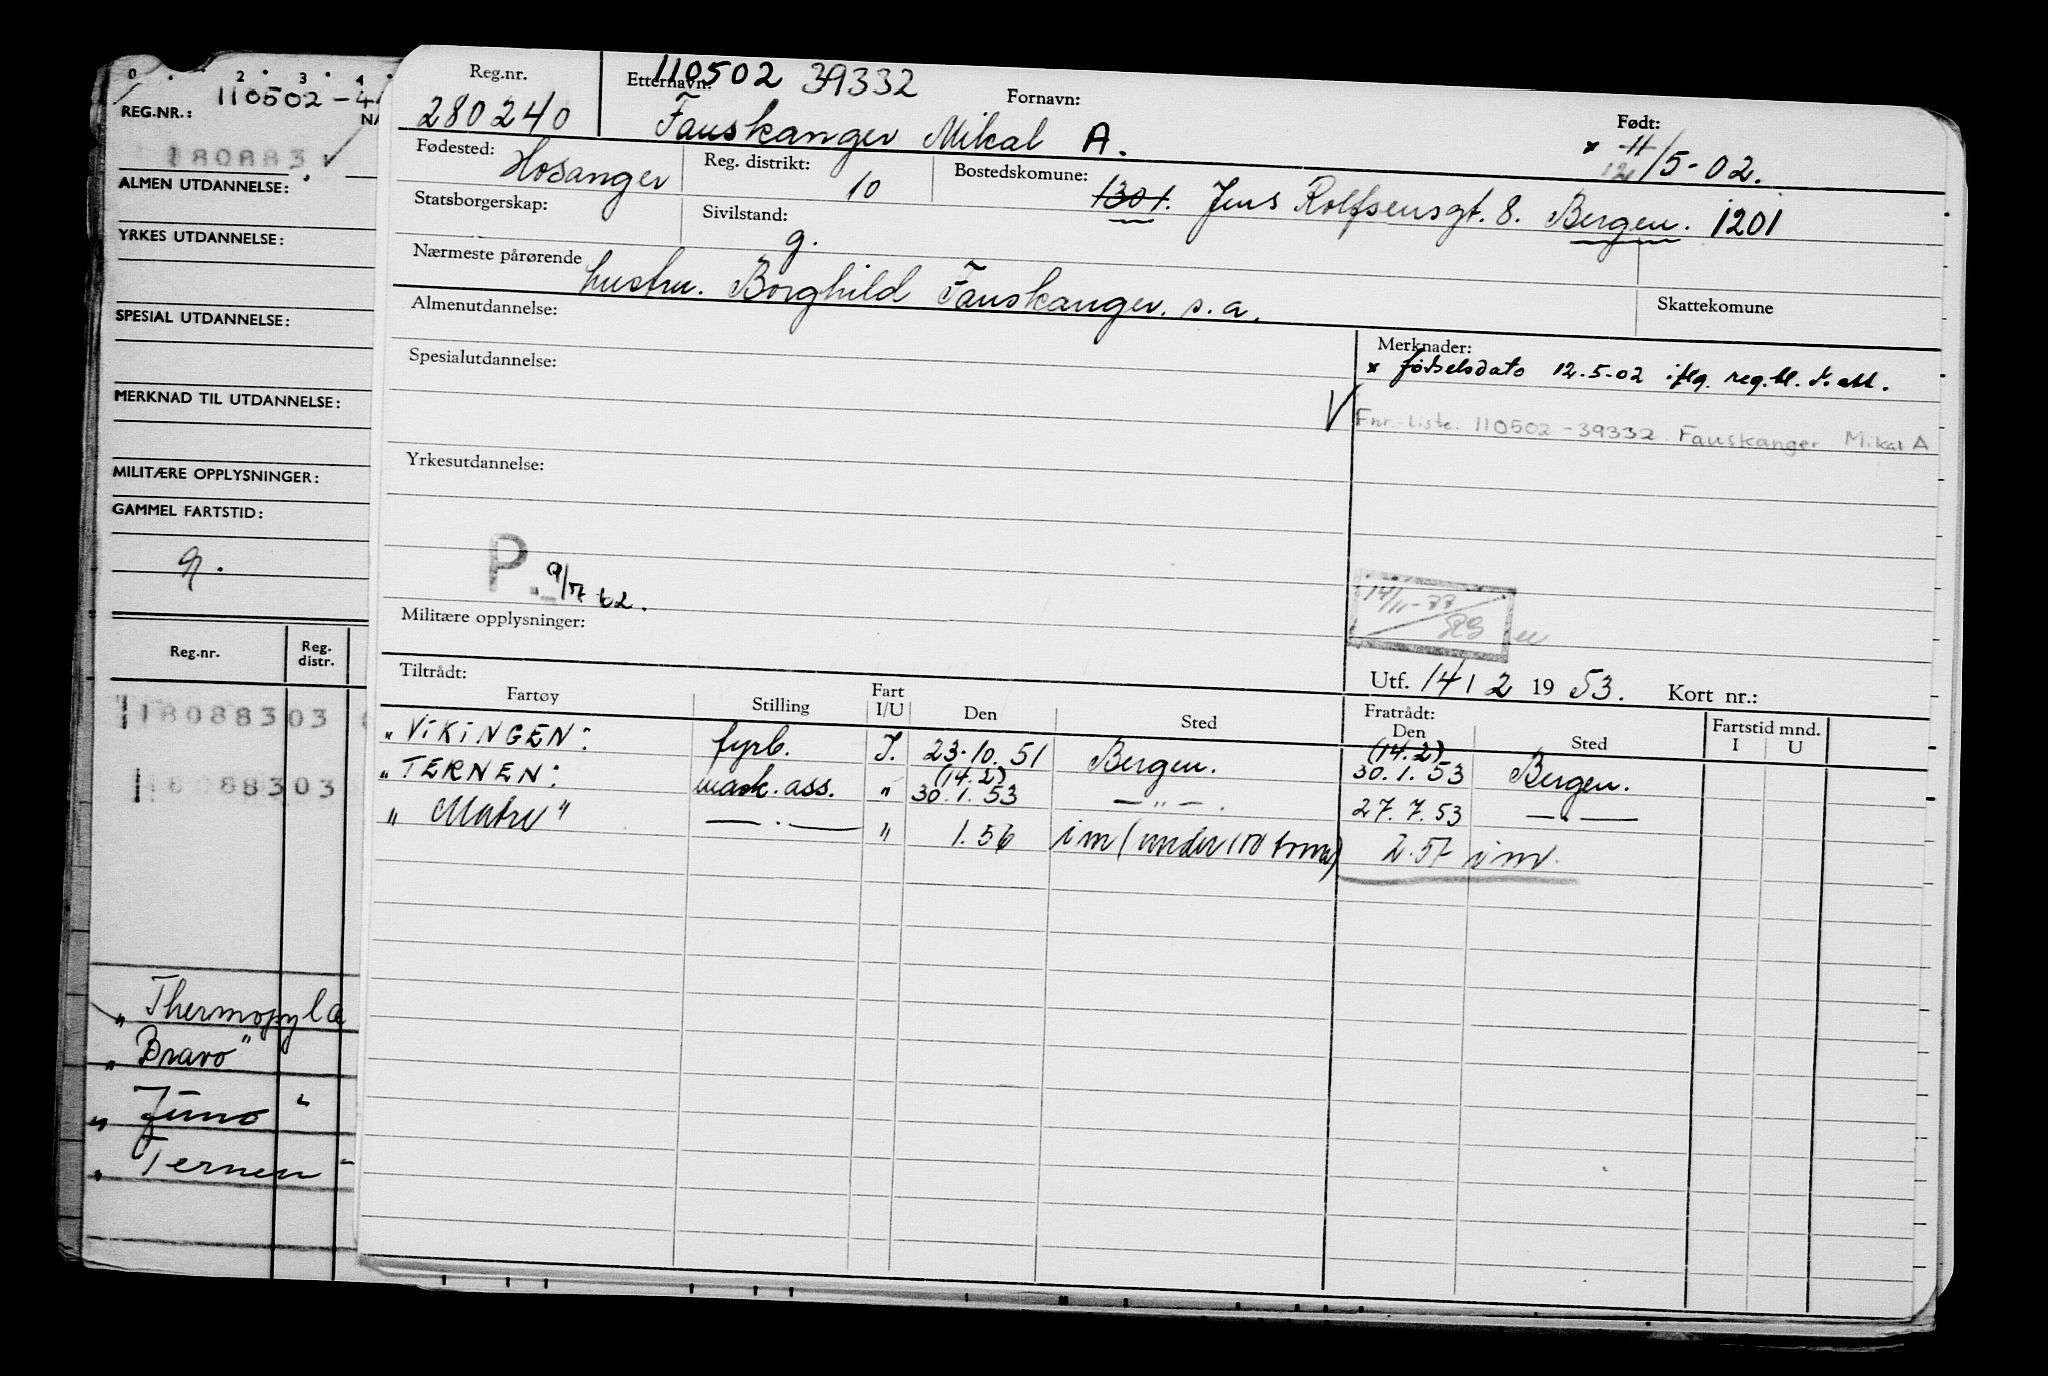 0 2 3 4
REG.NR.: 110502-4
NA
180883
ALMEN UTDANNELSE:
YRKES UTDANNELSE:
SPESIAL UTDANNELSE:
MERKNAD TIL UTDANNELSE:
MILITÆRE OPPLYSNINGER:
GAMMEL FARTSTID:
g.
Reg.nr. Reg. distr.
18088303
18088303
"Thermopylæ
"Bravo"
"Juno"
"Ternen"
Reg.nr. Etternavn: 110502 39332 Fornavn: Født:
280240 Fauskanger Mikal A. x 11/5-02.
12
Fødested: Hosanger Reg. distrikt: 10 Bostedskomune: 1301. Jens Rolfsensgt. 8. Bergen. 1201
Statsborgerskap: Sivilstand: g.
Nærmeste pårørende hustru. Borghild Fauskanger. s.a.
Skattekomune
Almenutdannelse:
Merknader:
x fødselsdato 12.5-02 iflg. reg.bl. f. att.
Spesialutdannelse:
Fnr.-liste: 110502-39332 Fauskanger Mikal A
Yrkesutdannelse:
P. 9/57 t2.
14/11-77
Militære opplysninger:
Utf. 14/2 1953. Kort nr.:
Tiltrådt: Fratrådt: Fartstid mnd.
Fartøy Stilling Fart I/U Den Sted Den Sted I U
"VIKINGEN: fyrb. I. 23.10.51 Bergen. (14.2) 30.1.53 Bergen.
"TERNEN: mask. ass. " (14.2) 30.1.53 —"—. 27.7.53 —"—
"Matre" —.— " 1.56 im (under 100 tonn) 2.57 im.